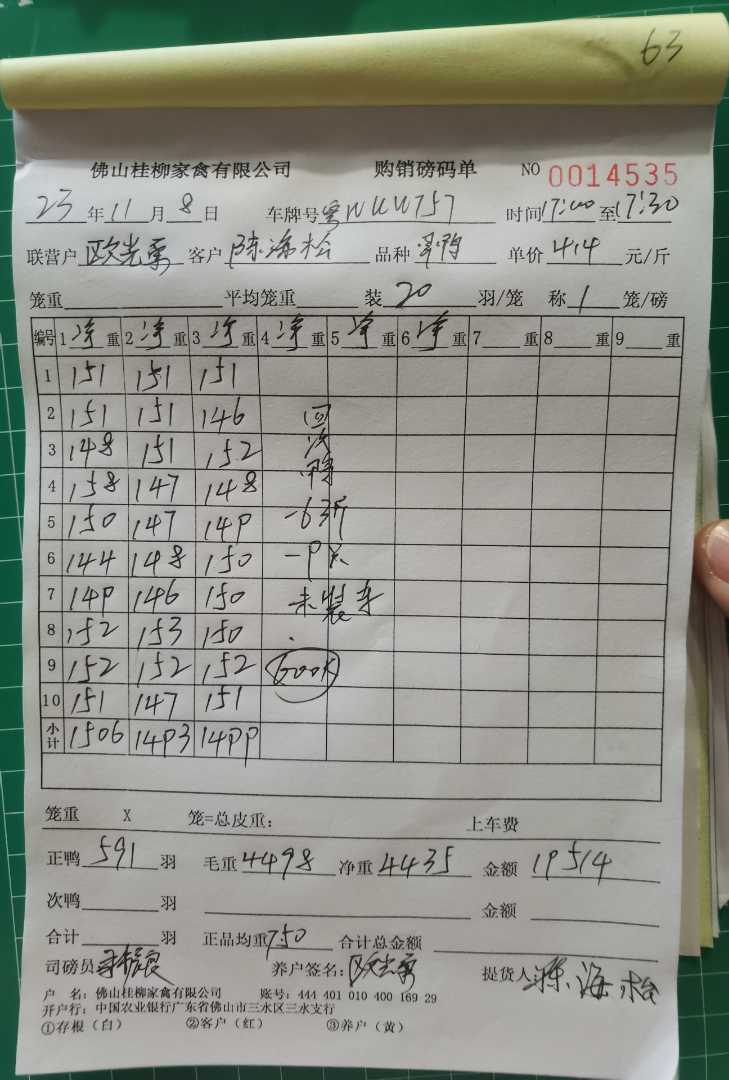 63
佛山桂柳家禽有限公司 购销磅码单 NO 0014535
23年11月8日 车牌号粤WUW757 时间17:00至17:30
联营户 欧光 客户 陈海松 品种 单价 4.4 元/斤
笼重 平均笼重 装 20 羽/笼 称 1 笼/磅
编号 1净重 2净重 3净重 4净重 5净重 6净重 7重 8重 9重
1 151 151 151
2 151 151 146
3 148 151 152
4 158 147 148
5 150 147 149
6 144 148 150
7 149 146 150
8 152 153 150
9 152 152 152
10 151 147 151
小计 1506 1493 1499
回次鸭
-63斤
-9只
未装车
600只
笼重 X 笼=总皮重: 上车费
正鸭 591 羽 毛重 4498 净重 4435 金额 19514
次鸭 羽 金额
合计 羽 正品均重 750 合计总金额
司磅员 养户签名: 欧光 提货人 陈海松
户 名: 佛山桂柳家禽有限公司 账号: 444 401 010 400 169 29
开户行: 中国农业银行广东省佛山市三水区三水支行
①存根(白) ②客户(红) ③养户(黄)